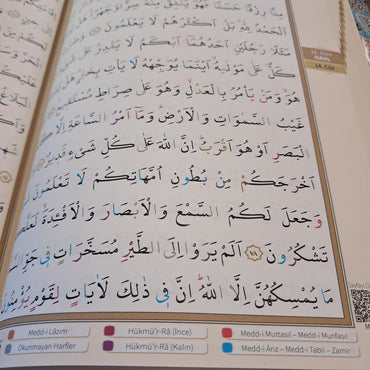 مِنَّا رِزْقًا حَسَنًا فَهُوَ يُنْفِقُ مِنْهُ سِرًّا وَجَهْرًا
اَلْحَمْدُ لِلّٰهِ بَلْ اَكْثَرُهُمْ لَا يَعْلَمُونَ
مَثَلًا رَجُلَيْنِ اَحَدُهُمَٓا اَبْكَمُ لَا يَقْدِرُ
كَلٌّ عَلٰى مَوْلٰيهُ اَيْنَمَا يُوَجِّهْهُ لَا يَأْتِ بِخَيْرٍ هَلْ
هُوَ وَمَنْ يَأْمُرُ بِالْعَدْلِ وَهُوَ عَلٰى صِرَاطٍ مُسْتَقِيمٍ
غَيْبُ السَّمٰوَاتِ وَالْاَرْضِ وَمَٓا اَمْرُ السَّاعَةِ اِلَّا
الْبَصَرِ اَوْ هُوَ اَقْرَبُ اِنَّ اللّٰهَ عَلٰى كُلِّ شَيْءٍ قَدِيرٌ
اَخْرَجَكُمْ مِنْ بُطُونِ اُمَّهَاتِكُمْ لَا تَعْلَمُونَ
وَجَعَلَ لَكُمُ السَّمْعَ وَالْاَبْصَارَ وَالْاَفْـِٔدَةَ لَعَلَّكُمْ
تَشْكُرُونَ ﴿٧٨﴾ اَلَمْ يَرَوْا اِلَى الطَّيْرِ مُسَخَّرَاتٍ فِي جَوِّ
مَا يُمْسِكُهُنَّ اِلَّا اللّٰهُ اِنَّ فِي ذٰلِكَ لَاٰيَاتٍ لِقَوْمٍ يُؤْمِنُونَ
NAHL
14. Cüz
Medd-i Lâzım
Hükmü'r-Râ (İnce)
Medd-i Muttasıl – Medd-i Munfasıl
Okunmayan Harfler
Hükmü'r-Râ (Kalın)
Medd-i Ârız – Medd-i Tabii – Zamir